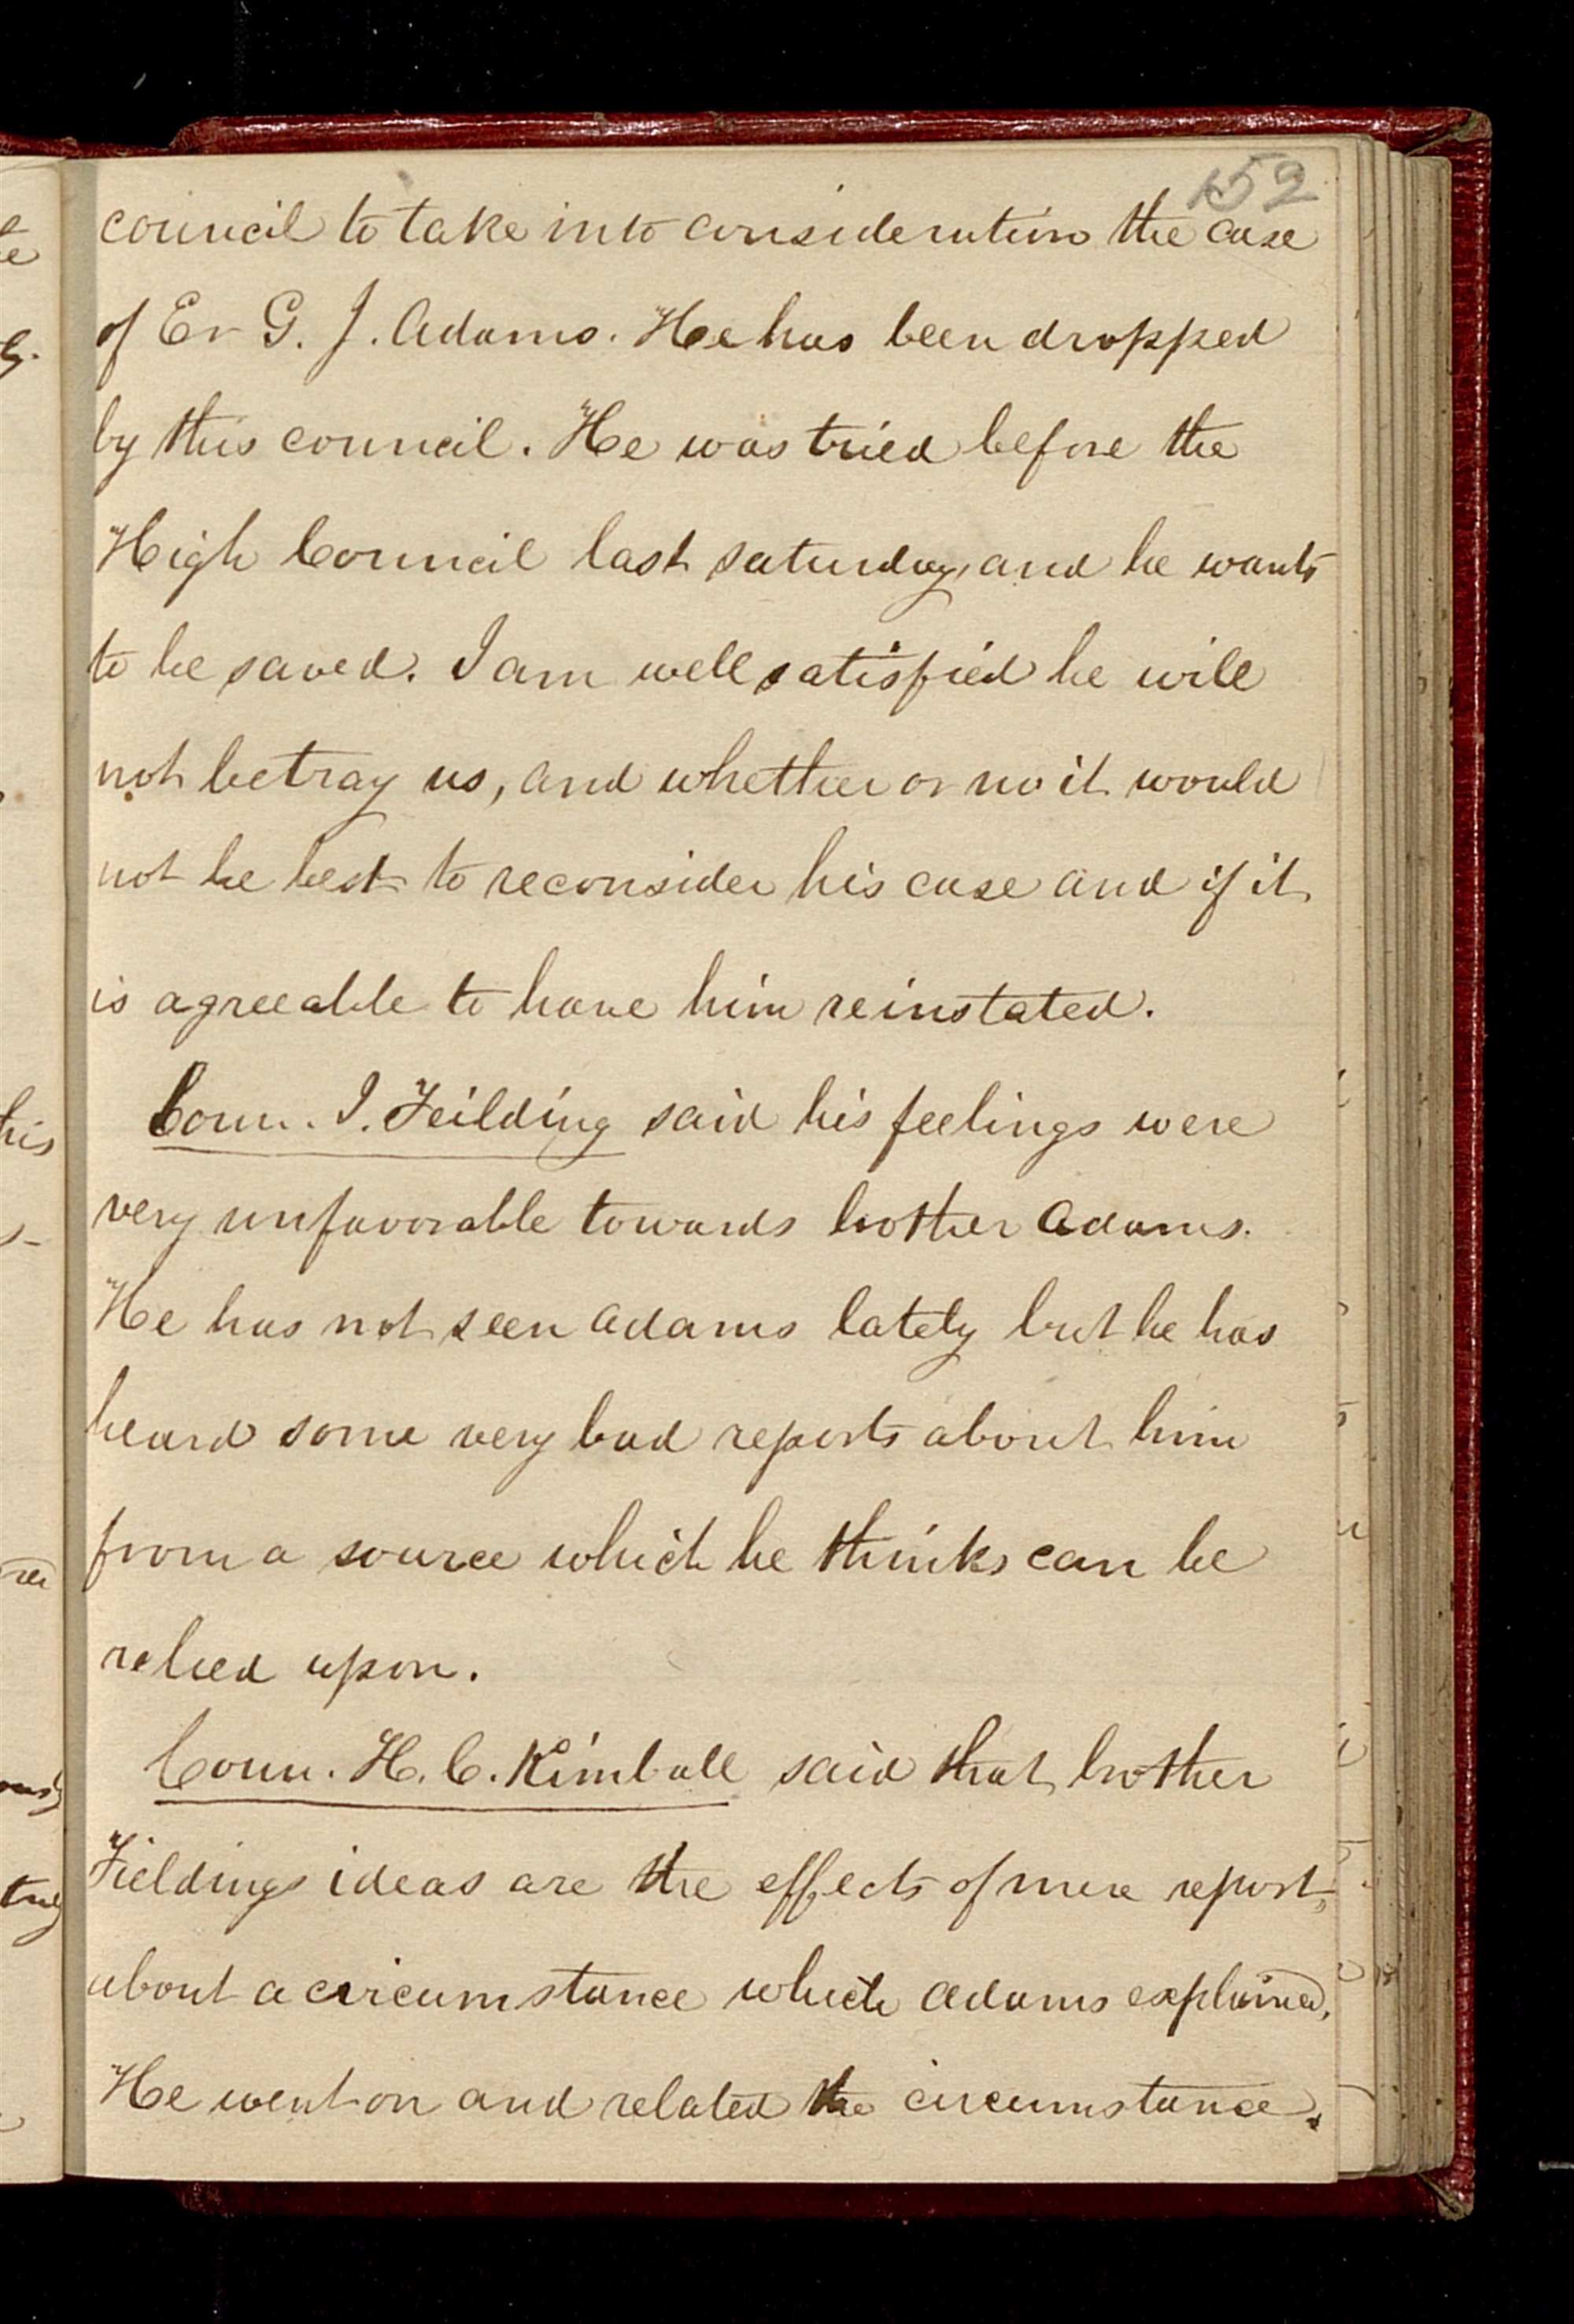 152
council to take into consideration the case
of Er G. J. Adams. He has been dropped
by this council. He was tried before the
High Council last saturday, and he wants
to be saved. I am well satisfied he will
not betray us, and whether or no it would
not be best to reconsider his case and if it
is agreeable to have him reinstated.
Coun. J. Feilding said his feelings were
very unfavorable towards brother Adams.
He has not seen Adams lately but he has
heard some very bad reports about him
from a source which he thinks can be
relied upon.
Coun. H. C. Kimball said that brother
Fieldings ideas are the effects of mere report,
about a circumstance which Adams explained.
He went on and related the circumstance.